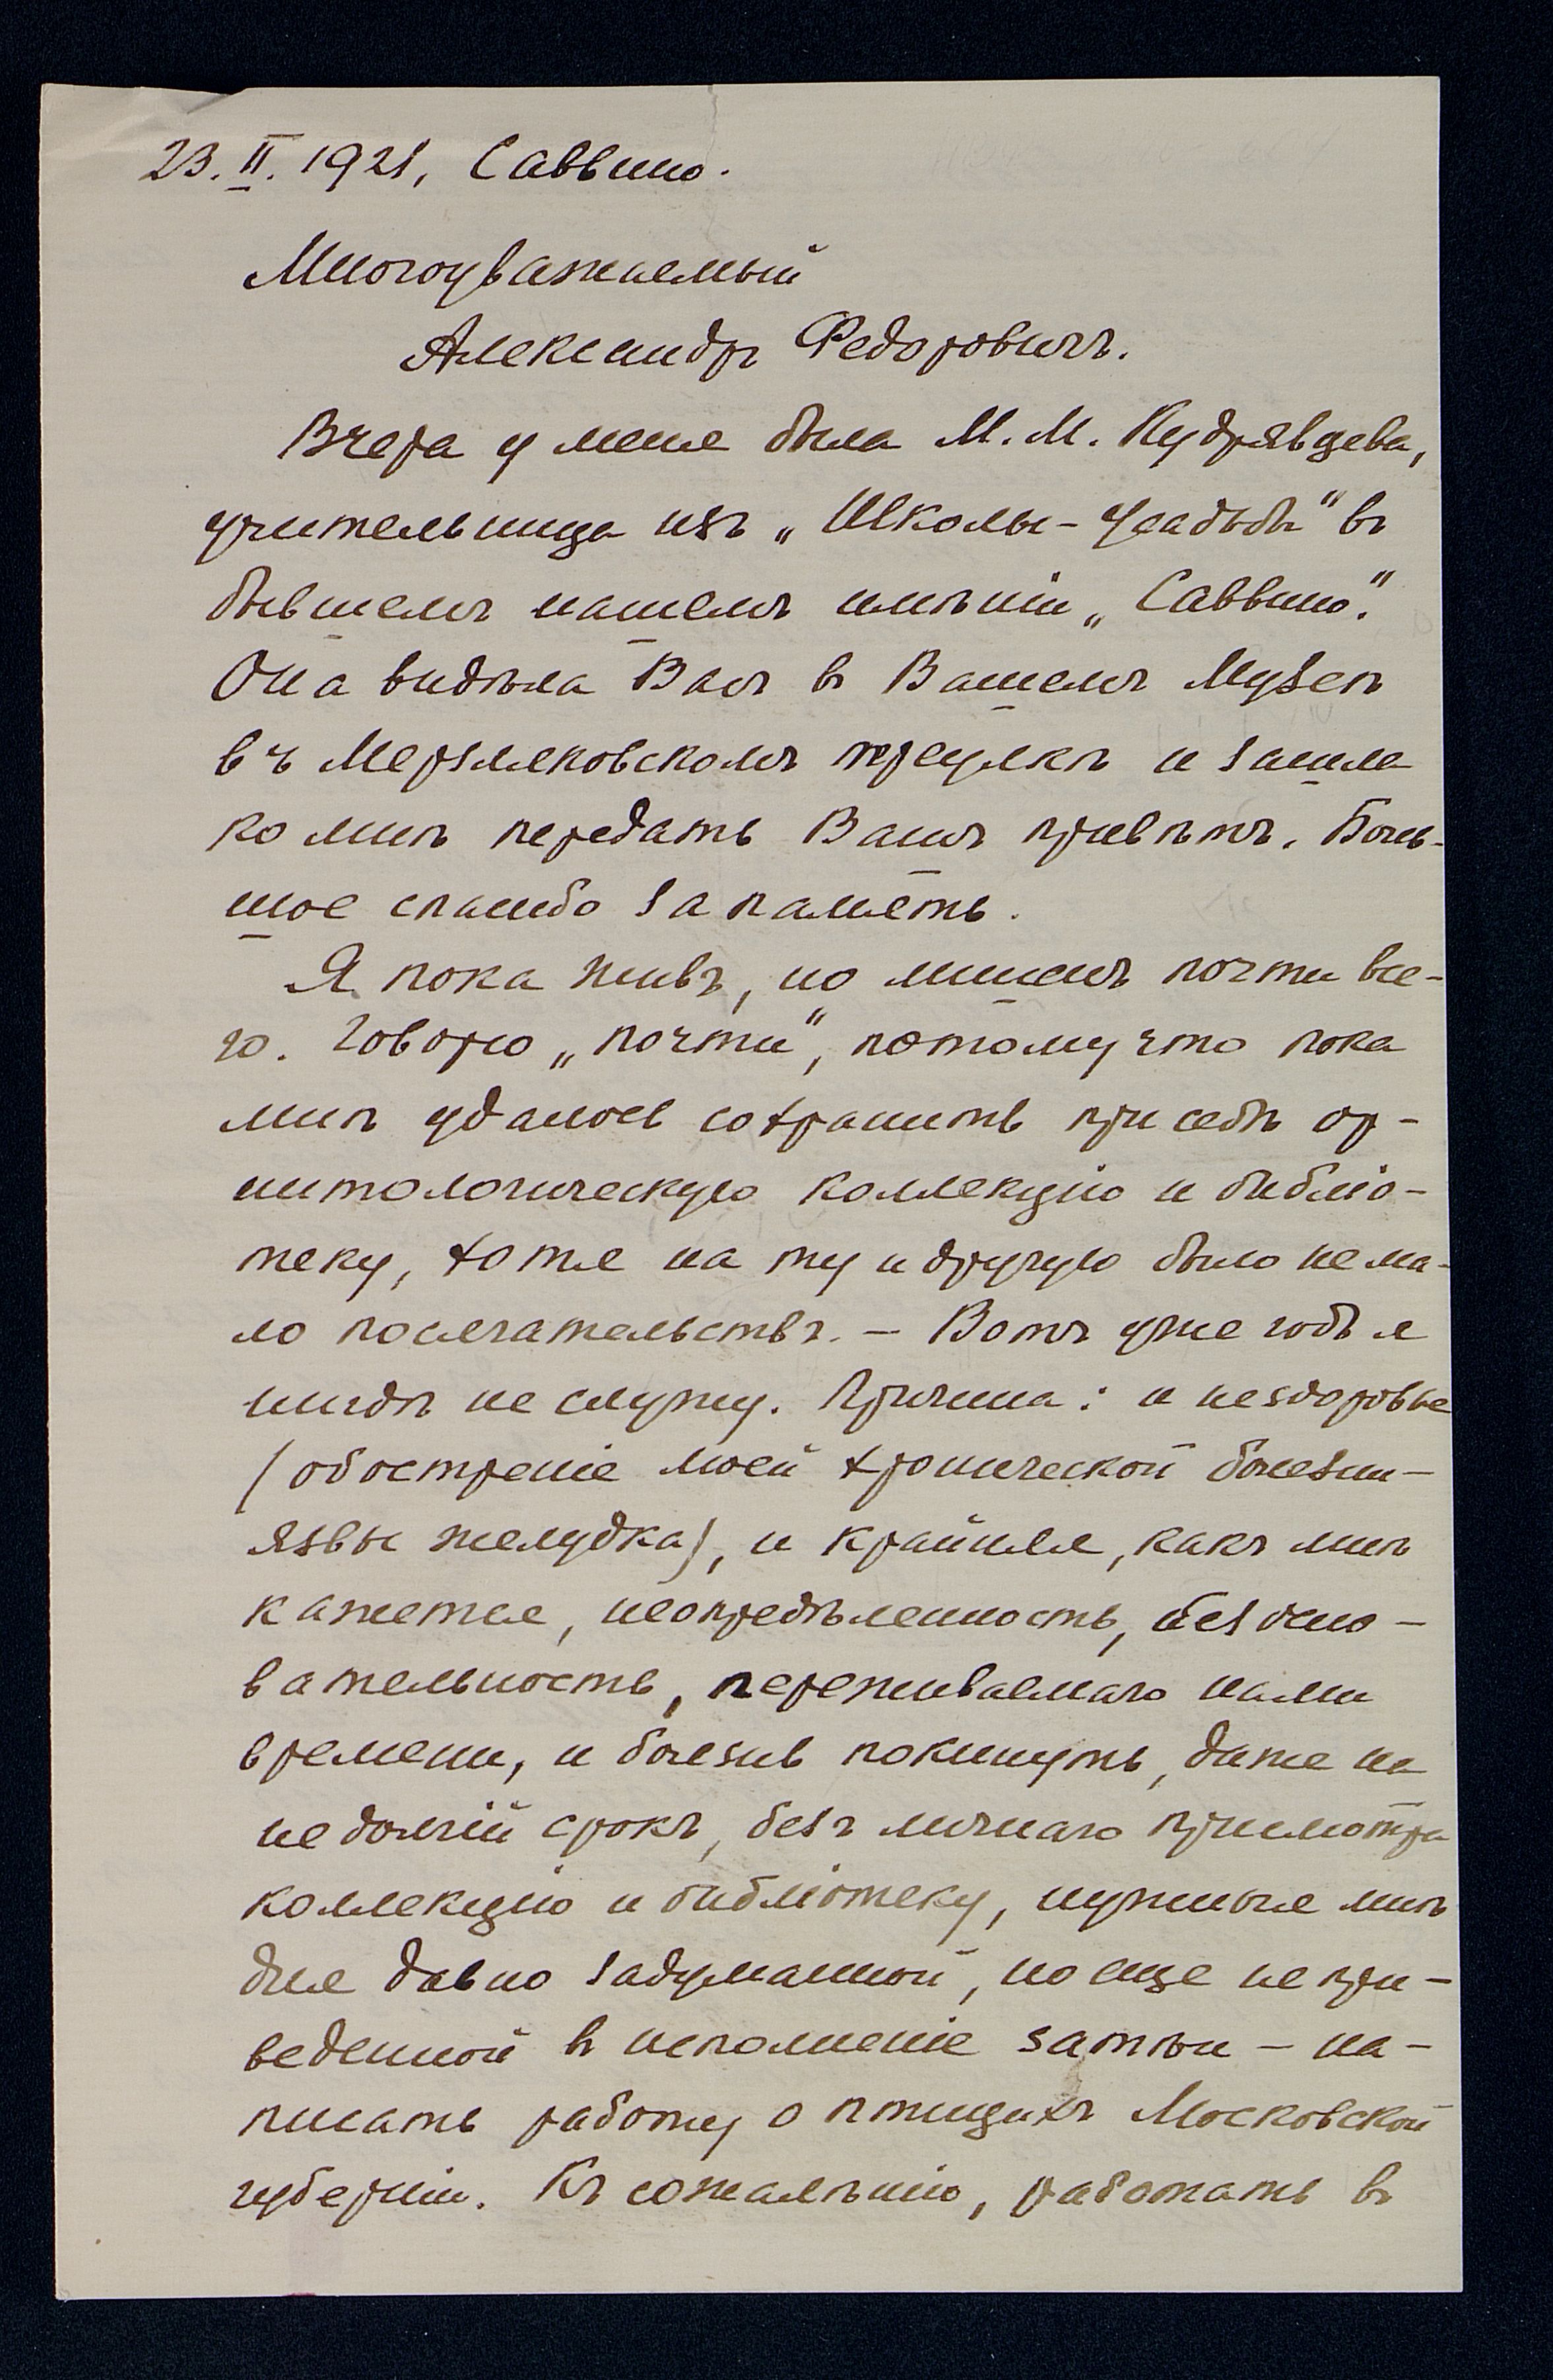 23.II.1921, Саввино.
Многоуважаемый
Александръ Федоровичъ.
Вчера у меня была М. М. Кудрявцева,
учительница изъ „Школы-Усадьбы" въ
бывшемъ нашемъ имѣніи „Саввино".
Она видѣла Васъ въ Вашемъ Музеѣ
въ Мерзляковскомъ переулкѣ и зашла
ко мнѣ передать Вашъ привѣтъ. Боль-
шое спасибо за память.
Я пока живъ, но лишенъ почти все-
го. Говорю „почти", потому что пока
мнѣ удалось сохранить при себѣ ор-
нитологическую коллекцію и библіо-
теку, хотя на ту и другую было нема-
ло посягательствъ. — Вотъ уже годъ я
нигдѣ не служу. Причина: и нездоровье
(обостреніе моей хронической болезни —
язвы желудка), и крайняя, какъ мнѣ
кажется, неопредѣленность, безосно-
вательность, переживаемаго нами
времени, и боязнь покинуть, даже на
недолгій срокъ, безъ личнаго присмотра
коллекцію и библіотеку, нужныя мнѣ
для давно задуманной, но еще не при-
веденной въ исполненіе затѣи — на-
писать работу о птицахъ Московской
губерніи. Къ сожалѣнію, работать въ